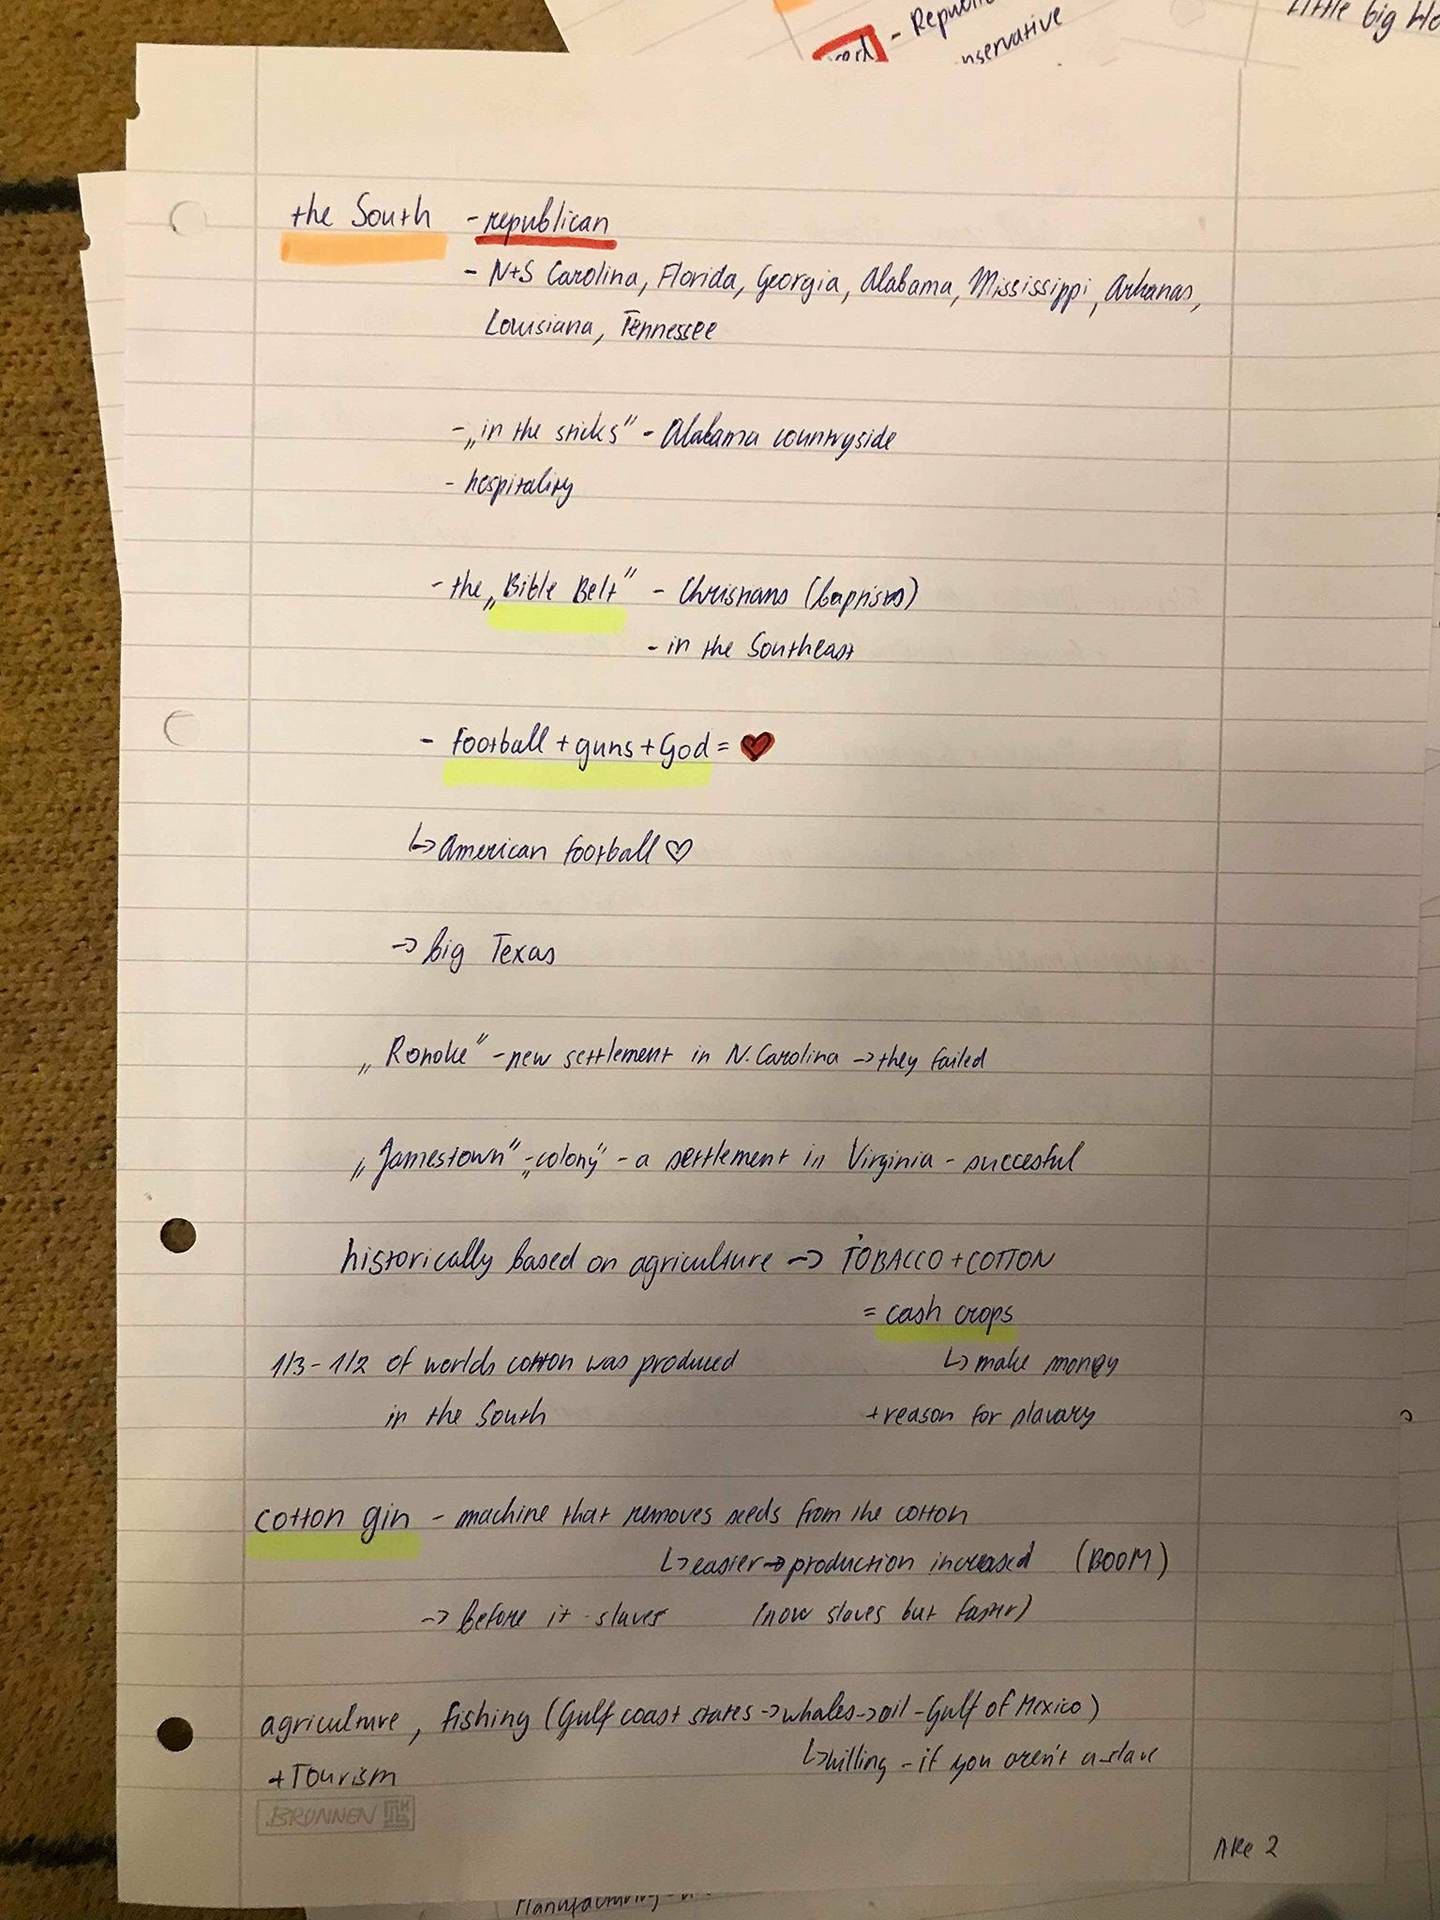 red - Republic
nservative
Little big Ho
the South - republican
- N+S Carolina, Florida, Georgia, Alabama, Mississippi, Arkanas,
Louisiana, Tennessee
- „in the sticks" - Alabama countryside
- hospitality
- the „Bible Belt" - Christians (baptists)
- in the Southeast
- Football + guns + God = ♥
↳ American football ♡
→ big Texas
„Ronoke" - new settlement in N. Carolina → they failed
„Jamestown" - „colony" - a settlement in Virginia - succesful
historically based on agriculture → TOBACCO + COTTON
= cash crops
1/3 - 1/2 of worlds cotton was produced ↳ make money
in the South + reason for slavary
cotton gin - machine that removes seeds from the cotton
↳ easier → production increased (BOOM)
→ before it - slaves (now slaves but faster)
agriculture, fishing (Gulf coast states → whales → oil - Gulf of Mexico)
+ Tourism ↳ killing - if you aren't a slave
BRUNNEN
ARe 2
Manufacturing